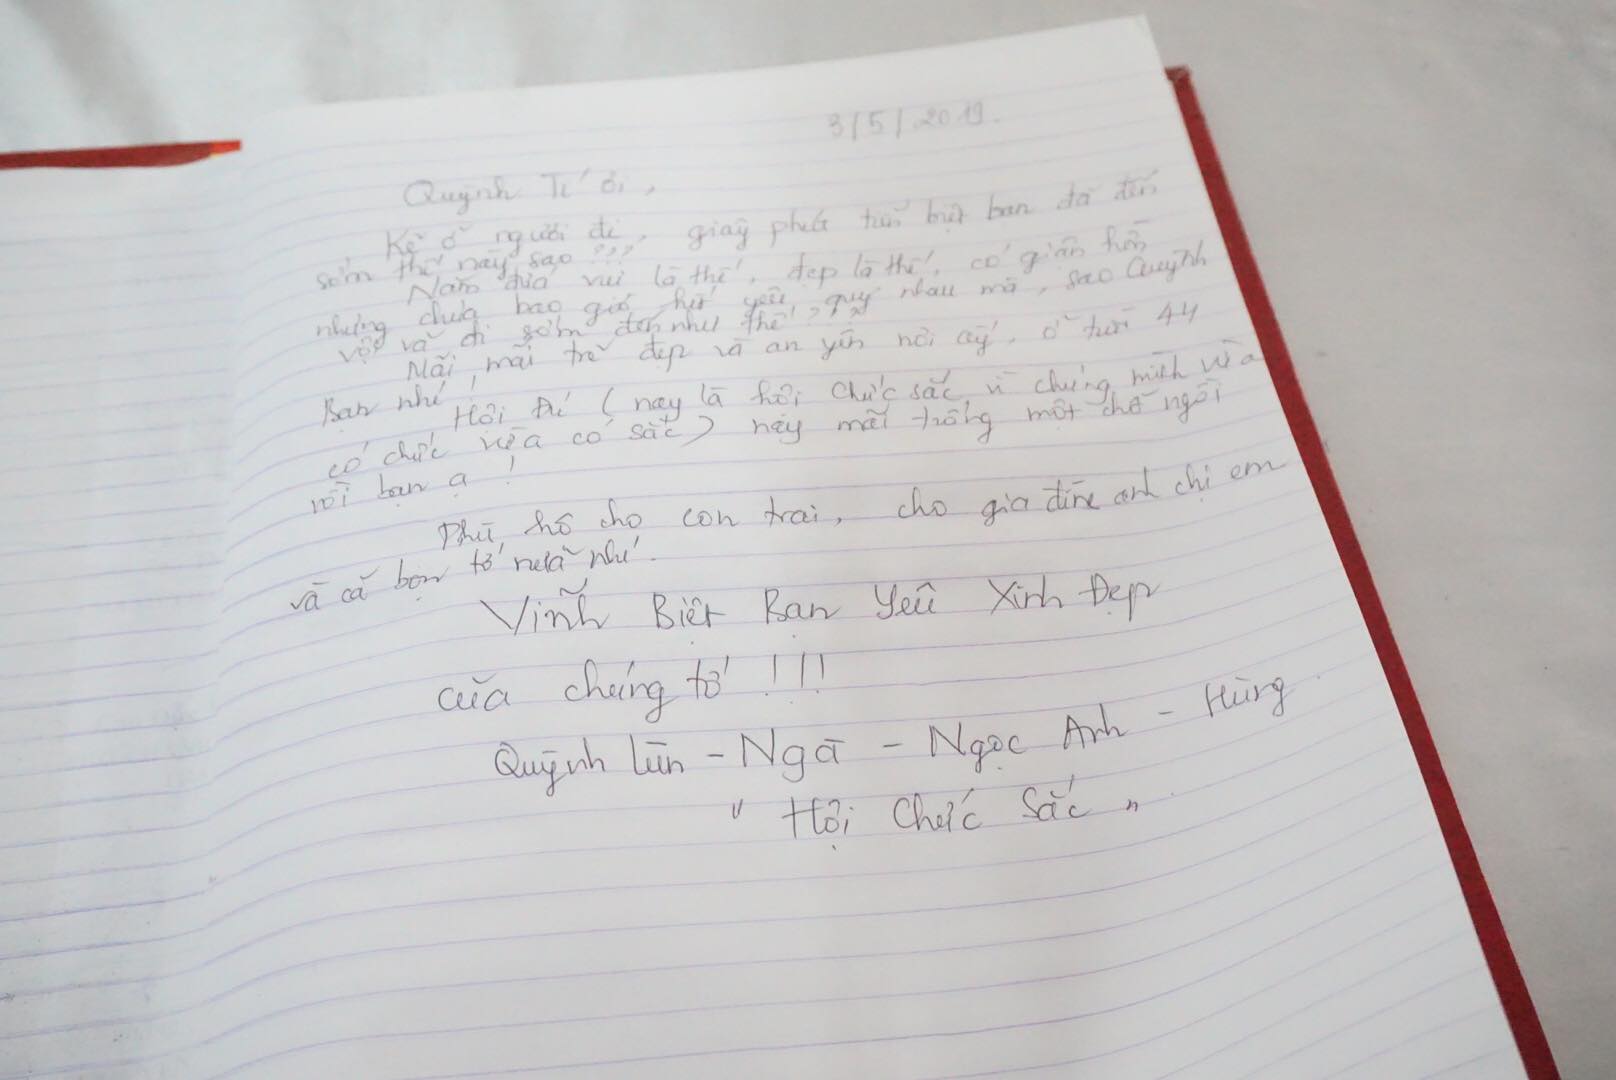 3/5/2019.
Quỳnh Tú ơi,
Kẻ ở người đi, giây phút tiễn biệt bạn đã đến
sớm thế này sao ???
Năm đứa vui là thế, đẹp là thế, có giận hờn
nhưng chưa bao giờ hết yêu, quý nhau mà, sao Quỳnh
vội vã đi sớm đến như thế ??
Mãi mãi trẻ đẹp và an yên nơi ấy, ở tuổi 44
Bạn nhé!
Hội (nay là hội chức sắc vì chúng mình vừa
có chức vừa có sắc) này mãi trống một chỗ ngồi
rồi bạn ạ!
Phù hộ cho con trai, cho gia đình anh chị em
và cả bọn tớ nữa nhé.
Vĩnh Biệt Bạn Yêu Xinh Đẹp
của chúng tớ !!!
Quỳnh Lùn - Ngà - Ngọc Anh - Hùng
" Hội Chức Sắc "